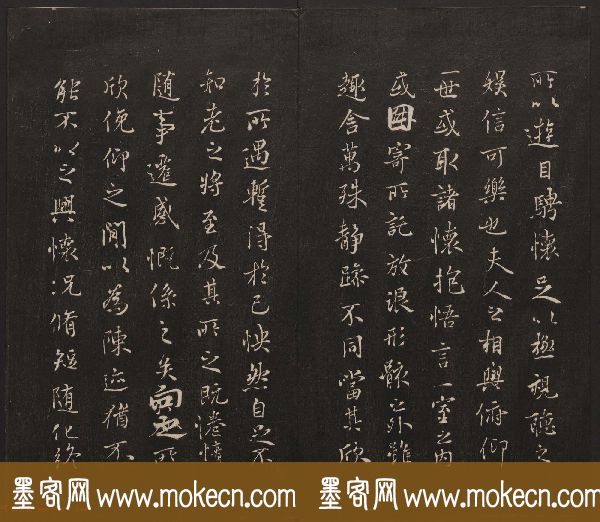 所以遊目騁懷足以極視聽之
娛信可樂也夫人之相與俯仰
一世或取諸懷抱悟言一室之內
或因寄所託放浪形骸之外雖
趣舍萬殊静躁不同當其欣
於所遇蹔得於己怏然自足不
知老之將至及其所之既惓情
隨事遷感慨係之矣向之所
欣俛仰之閒以為陳迹猶不
能不以之興懷況脩短隨化終
墨客网 www.mokecn.com 墨客网 www.mokecn.com